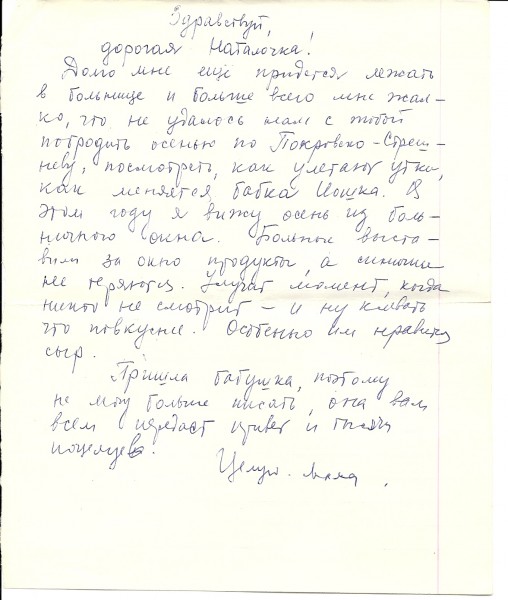 Здравствуй,
дорогая Наталочка!
Долго мне ещё придется лежать
в больнице и больше всего мне жал-
ко, что не удалось нам с тобой
побродить осенью по Покровско-Стреш-
неву, посмотреть, как улетают утки,
как меняется бабка Йошка. В
этом году я вижу осень из боль-
ничного окна. Больные выста-
вили за окно продукты, а синички
не теряются. Улучат момент, когда
никто не смотрит – и ну клевать
что повкуснее. Особенно им нравится
сыр.
Пришла бабушка, поэтому
не могу больше писать, она вам
всем передает привет и тысячу
поцелуев.
Целую.